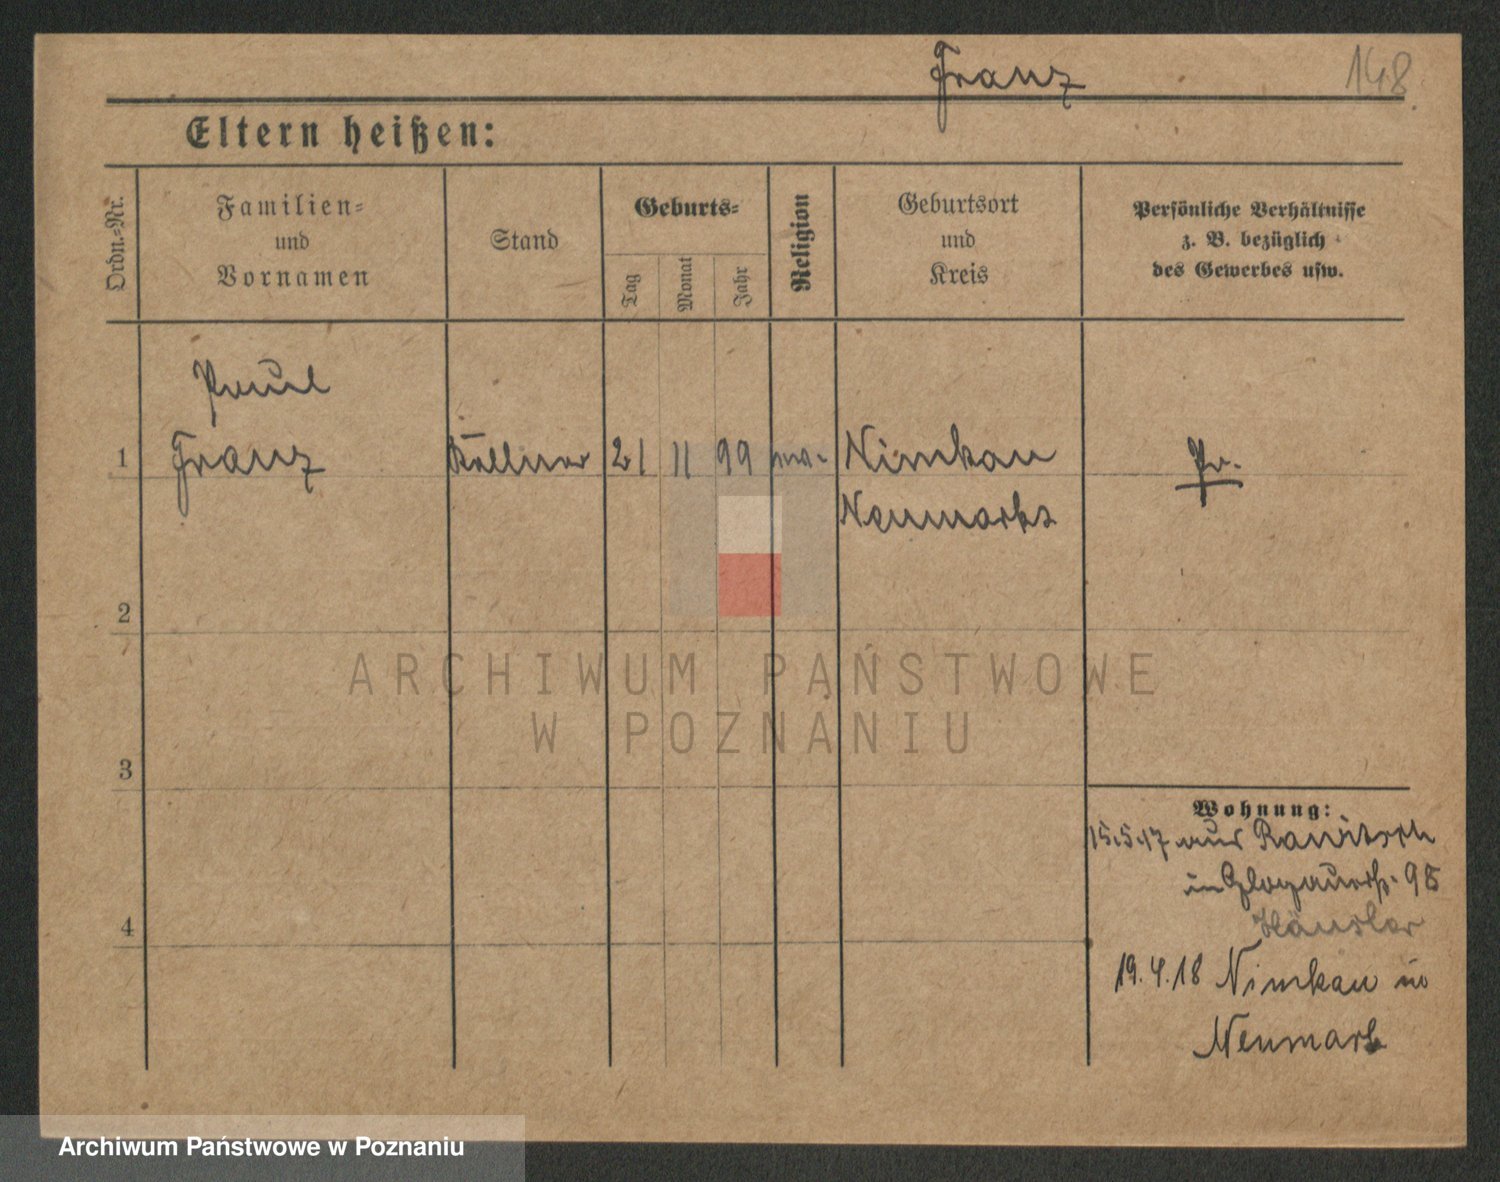 Franz
148
Eltern heißen:
Ordn.=Nr.
Familien=
und
Vornamen
Stand
Geburts=
Tag
Monat
Jahr
Religion
Geburtsort
und
Kreis
Persönliche Verhältnisse
z. B. bezüglich
des Gewerbes usw.
Paul
1 Franz Kellner 21 11 99 Nimkau Pr.
Neumarkt
2
ARCHIWUM PAŃSTWOWE
W POZNANIU
3
Wohnung:
15.5.17 aus Rawitsch
in Glogauerstr. 98
Häusler
4
19.4.18 Nimkau in
Neumark
Archiwum Państwowe w Poznaniu